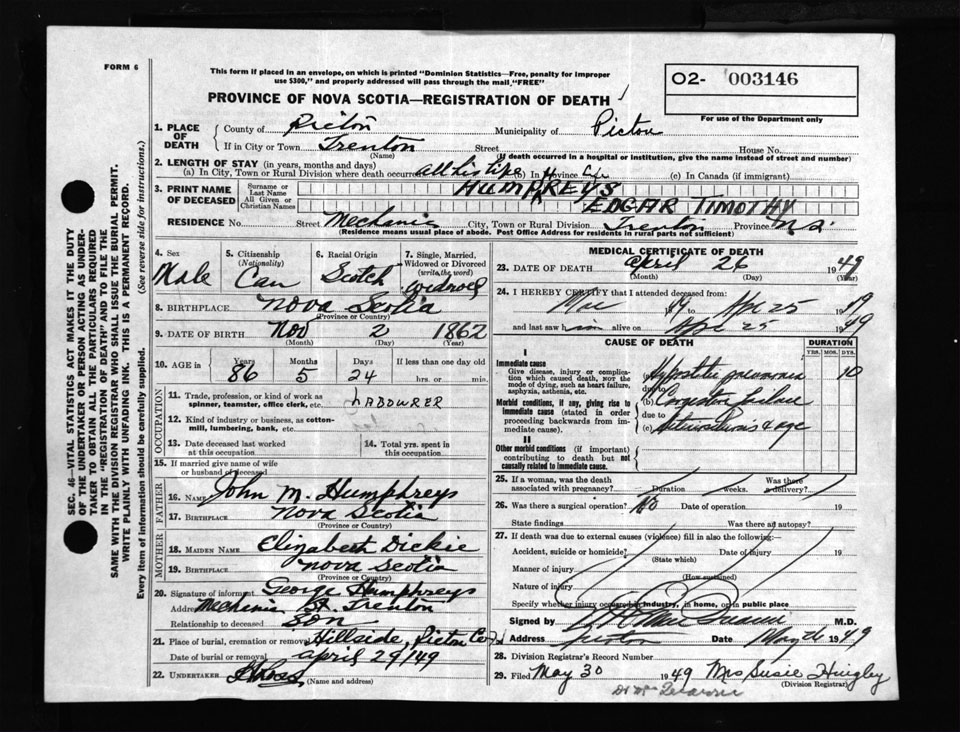 FORM 6
This form if placed in an envelope, on which is printed "Dominion Statistics—Free, penalty for improper
use $300," and properly addressed will pass through the mail "FREE"
PROVINCE OF NOVA SCOTIA—REGISTRATION OF DEATH
02- 003146
For use of the Department only
1. PLACE OF DEATH
County of Pictou Municipality of Pictou
If in City or Town Trenton Street House No.
(Name) (If death occurred in a hospital or institution, give the name instead of street and number)
2. LENGTH OF STAY (in years, months and days)
(a) In City, Town or Rural Division where death occurred all his life (c) In Canada (if immigrant)
3. PRINT NAME OF DECEASED
Surname or Last Name HUMPHREYS
All Given or Christian Names EDGAR TIMOTHY
RESIDENCE No. Street Mechanic City, Town or Rural Division Trenton Province N.S.
(Residence means usual place of abode. Post Office Address for residents in rural parts not sufficient)
4. Sex Male
5. Citizenship (Nationality) Can
6. Racial Origin Scotch
7. Single, Married, Widowed or Divorced (write the word) Widowed
8. BIRTHPLACE Nova Scotia
(Province or Country)
9. DATE OF BIRTH Nov 2 1862
(Month) (Day) (Year)
10. AGE in Years 86 Months 5 Days 24 If less than one day old
hrs. or min.
OCCUPATION
11. Trade, profession, or kind of work as
spinner, teamster, office clerk, etc. LABOURER
12. Kind of industry or business, as cotton-
mill, lumbering, bank, etc.
13. Date deceased last worked
at this occupation
14. Total yrs. spent in
this occupation
15. If married give name of wife
or husband of deceased
FATHER
16. NAME John M. Humphreys
17. BIRTHPLACE Nova Scotia
(Province or Country)
MOTHER
18. MAIDEN NAME Elizabeth Dickie
19. BIRTHPLACE Nova Scotia
(Province or Country)
20. Signature of informant George Humphreys
Address Mechanic St. Trenton
Relationship to deceased Son
21. Place of burial, cremation or removal Hillside, Pictou Co
Date of burial or removal April 29/49
22. UNDERTAKER
(Name and address)
MEDICAL CERTIFICATE OF DEATH
23. DATE OF DEATH April 26 1949
(Month) (Day) (Year)
24. I HEREBY CERTIFY that I attended deceased from:
19 to Apr 25 1949
and last saw him alive on Apr 25 1949
CAUSE OF DEATH
DURATION
YRS. MOS. DYS.
I
Immediate cause
Give disease, injury or complica-
tion which caused death, not the
mode of dying, such as heart failure,
asphyxia, asthenia, etc.
(a) Hypostatic pneumonia 10
due to
Morbid conditions, if any, giving rise to
immediate cause (stated in order
proceeding backwards from im-
mediate cause).
(b) Congestive failure
due to
(c) Arteriosclerosis & age
II
Other morbid conditions (if important)
contributing to death but not
causally related to immediate cause.
25. If a woman, was the death
associated with pregnancy? Duration weeks. Was there
a delivery?
26. Was there a surgical operation? No Date of operation 19
State findings Was there an autopsy?
27. If death was due to external causes (violence) fill in also the following:
Accident, suicide or homicide? Date of injury 19
(State which)
Manner of injury
(How sustained)
Nature of injury
Specify whether injury occurred in industry, in home, or in public place
Signed by M.D.
Address Pictou Date 1949
28. Division Registrar's Record Number
29. Filed May 30 1949 Mrs Susie Hingley
(Division Registrar)
SEC. 46—VITAL STATISTICS ACT MAKES IT THE DUTY
OF THE UNDERTAKER OR PERSON ACTING AS UNDER-
TAKER TO OBTAIN ALL THE PARTICULARS REQUIRED
IN THE "REGISTRATION OF DEATH" AND TO FILE THE
SAME WITH THE DIVISION REGISTRAR WHO SHALL ISSUE THE BURIAL PERMIT.
WRITE PLAINLY WITH UNFADING INK. THIS IS A PERMANENT RECORD.
Every item of information should be carefully supplied. (See reverse side for instructions.)